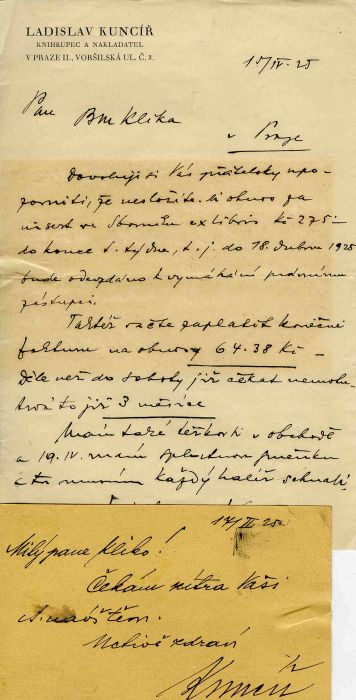 LADISLAV KUNCÍŘ
KNIHKUPEC A NAKLADATEL
V PRAZE II., VORŠILSKÁ UL. Č. 3.
15/IV. 25
Pan Klika
v Praze
Dovoluji si Vás přátelsky upo-
zorniti, že nesložíte-li obnos za
insert ve Sborníku exlibris Kč 275.-
do konce t. týdne, t. j. do 18. dubna 1925
bude odevzdáno k vymáhání právnímu
zástupci.
Taktéž račte zaplatit konečně
fakturu na obnos 64.38 Kč –
Déle než do soboty již čekat nemohu
trvá to již 3 měsíce
Mám také těžkosti v obchodě
a 19. IV. mám splatnou
a tu musím každý haléř
Milý pane Kliko!
Čekám zítra Vaši
Uctivě zdraví
Kuncíř